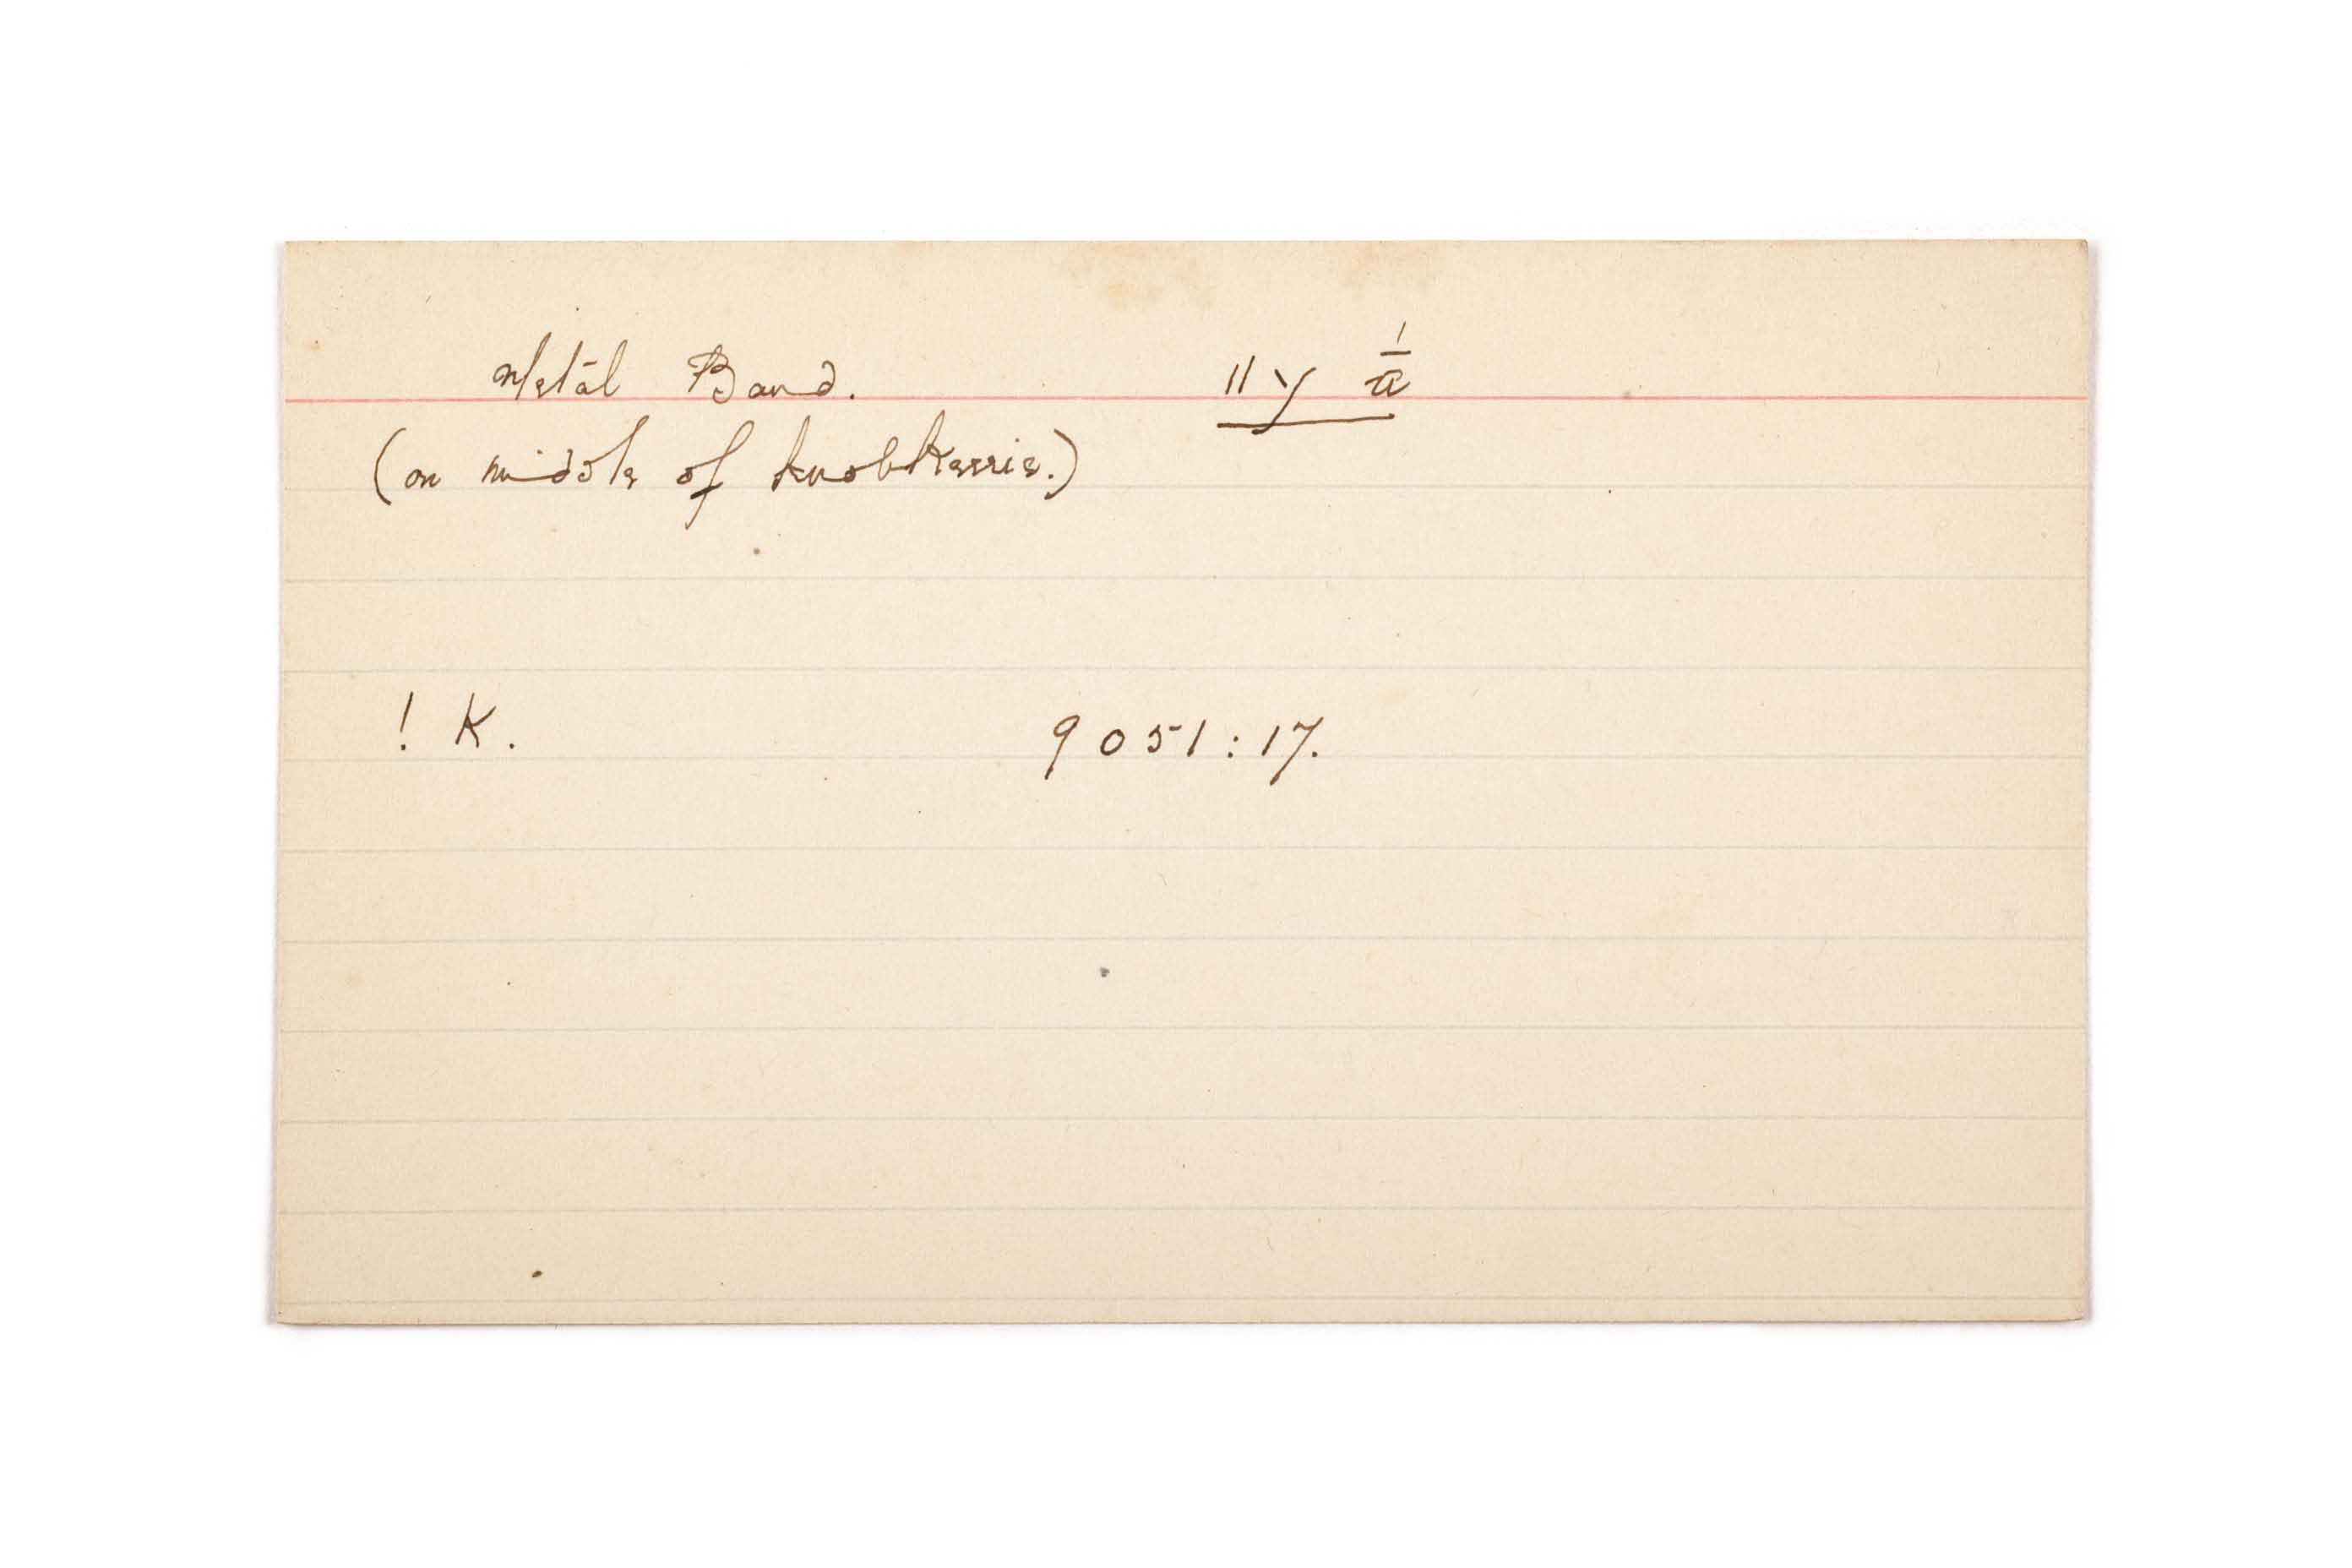 Metal Band. ǁy a̱
(on middle of knobkerrie.)
! K. 9051:17.